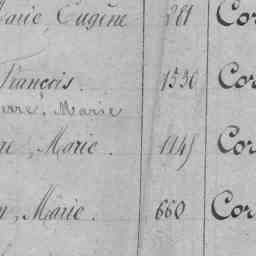 Marie, Eugène 281 Cor
François. 1530 Cor
Pierre, Marie
Marie. 1145 Cor
Marie. 660 Cor